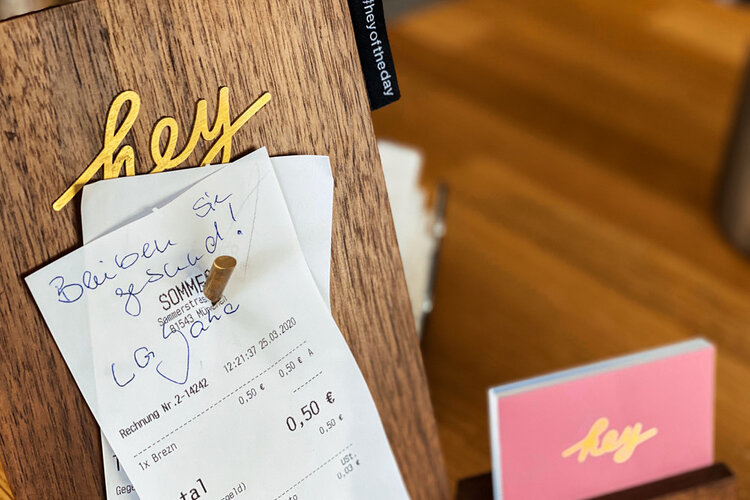 #heyoftheday
hey
Bleiben Sie
gesund!
LG Jana
SOMME
Sommerstra
81543 Münch
12:21:37 25.03.2020
Rechnung Nr.2-14242
0,50 €
0,50 € A
1x Brezn
0,50 €
tal
geld)
USt.
0,03 €
hey